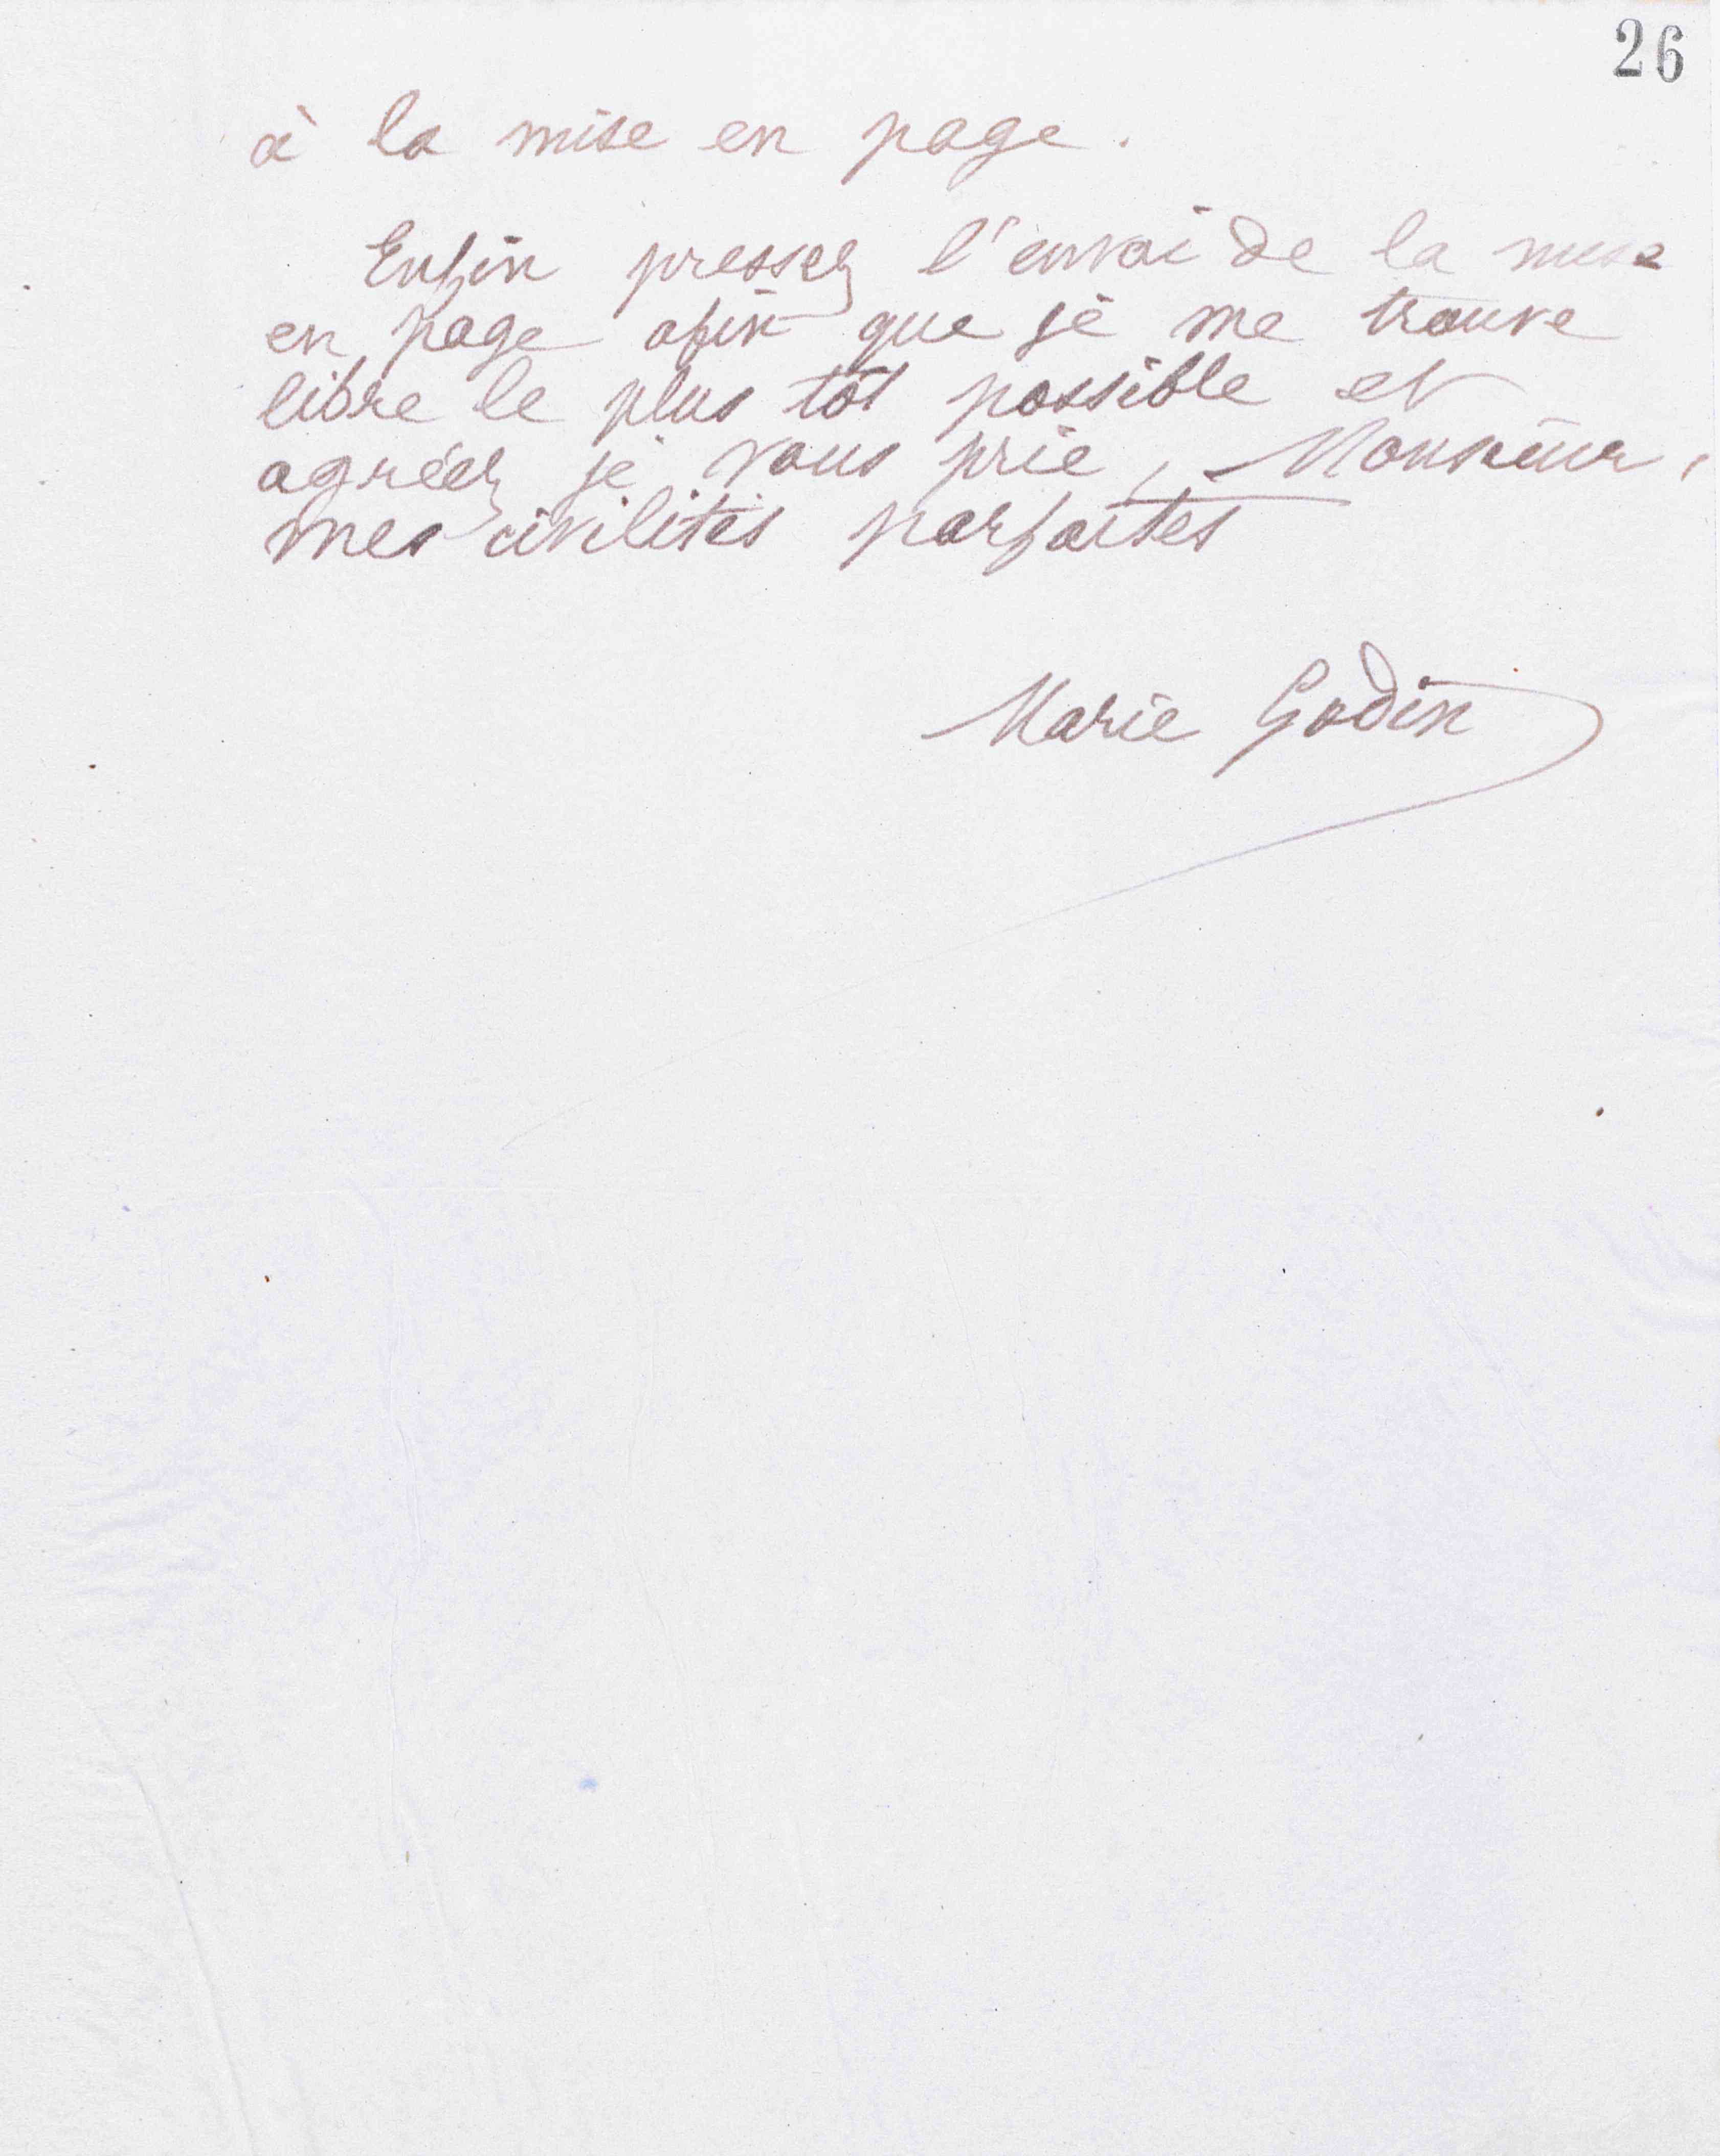 26
à la mise en page.
Enfin pressez l'envoi de la mise
en page afin que je me trouve
libre le plus tôt possible et
agréez je vous prie, Monsieur,
mes civilités parfaites
Marie Godin